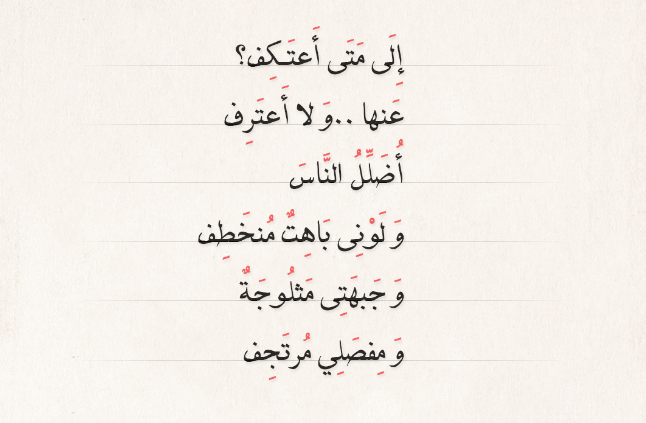 إِلَى مَتَى أَعتَـكِف؟
عَنها ..وَ لا أَعتَرِف
أُضَلِّلُ النَّاسَ
وَ لَوْنِى بَاهِتٌ مُنخَطِف
وَ جَبهَتِى مَثلُوجَةٌ
وَ مِفصَلِي مُرتَجِف